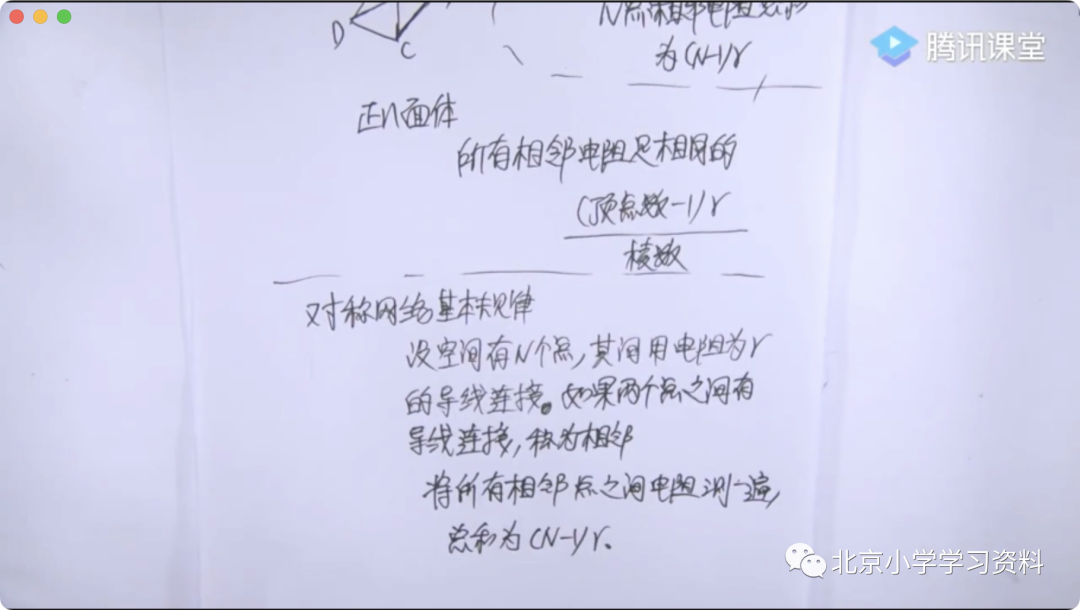 D
C
N点相邻电阻总和
为(N-1)r
腾讯课堂
正n面体
所有相邻电阻是相同的
(顶点数-1)r
棱数
对称网络基本规律
设空间有N个点,其间用电阻为r
的导线连接。如果两个点之间有
导线连接,称为相邻
将所有相邻点之间电阻测一遍,
总和为(N-1)r.
北京小学学习资料